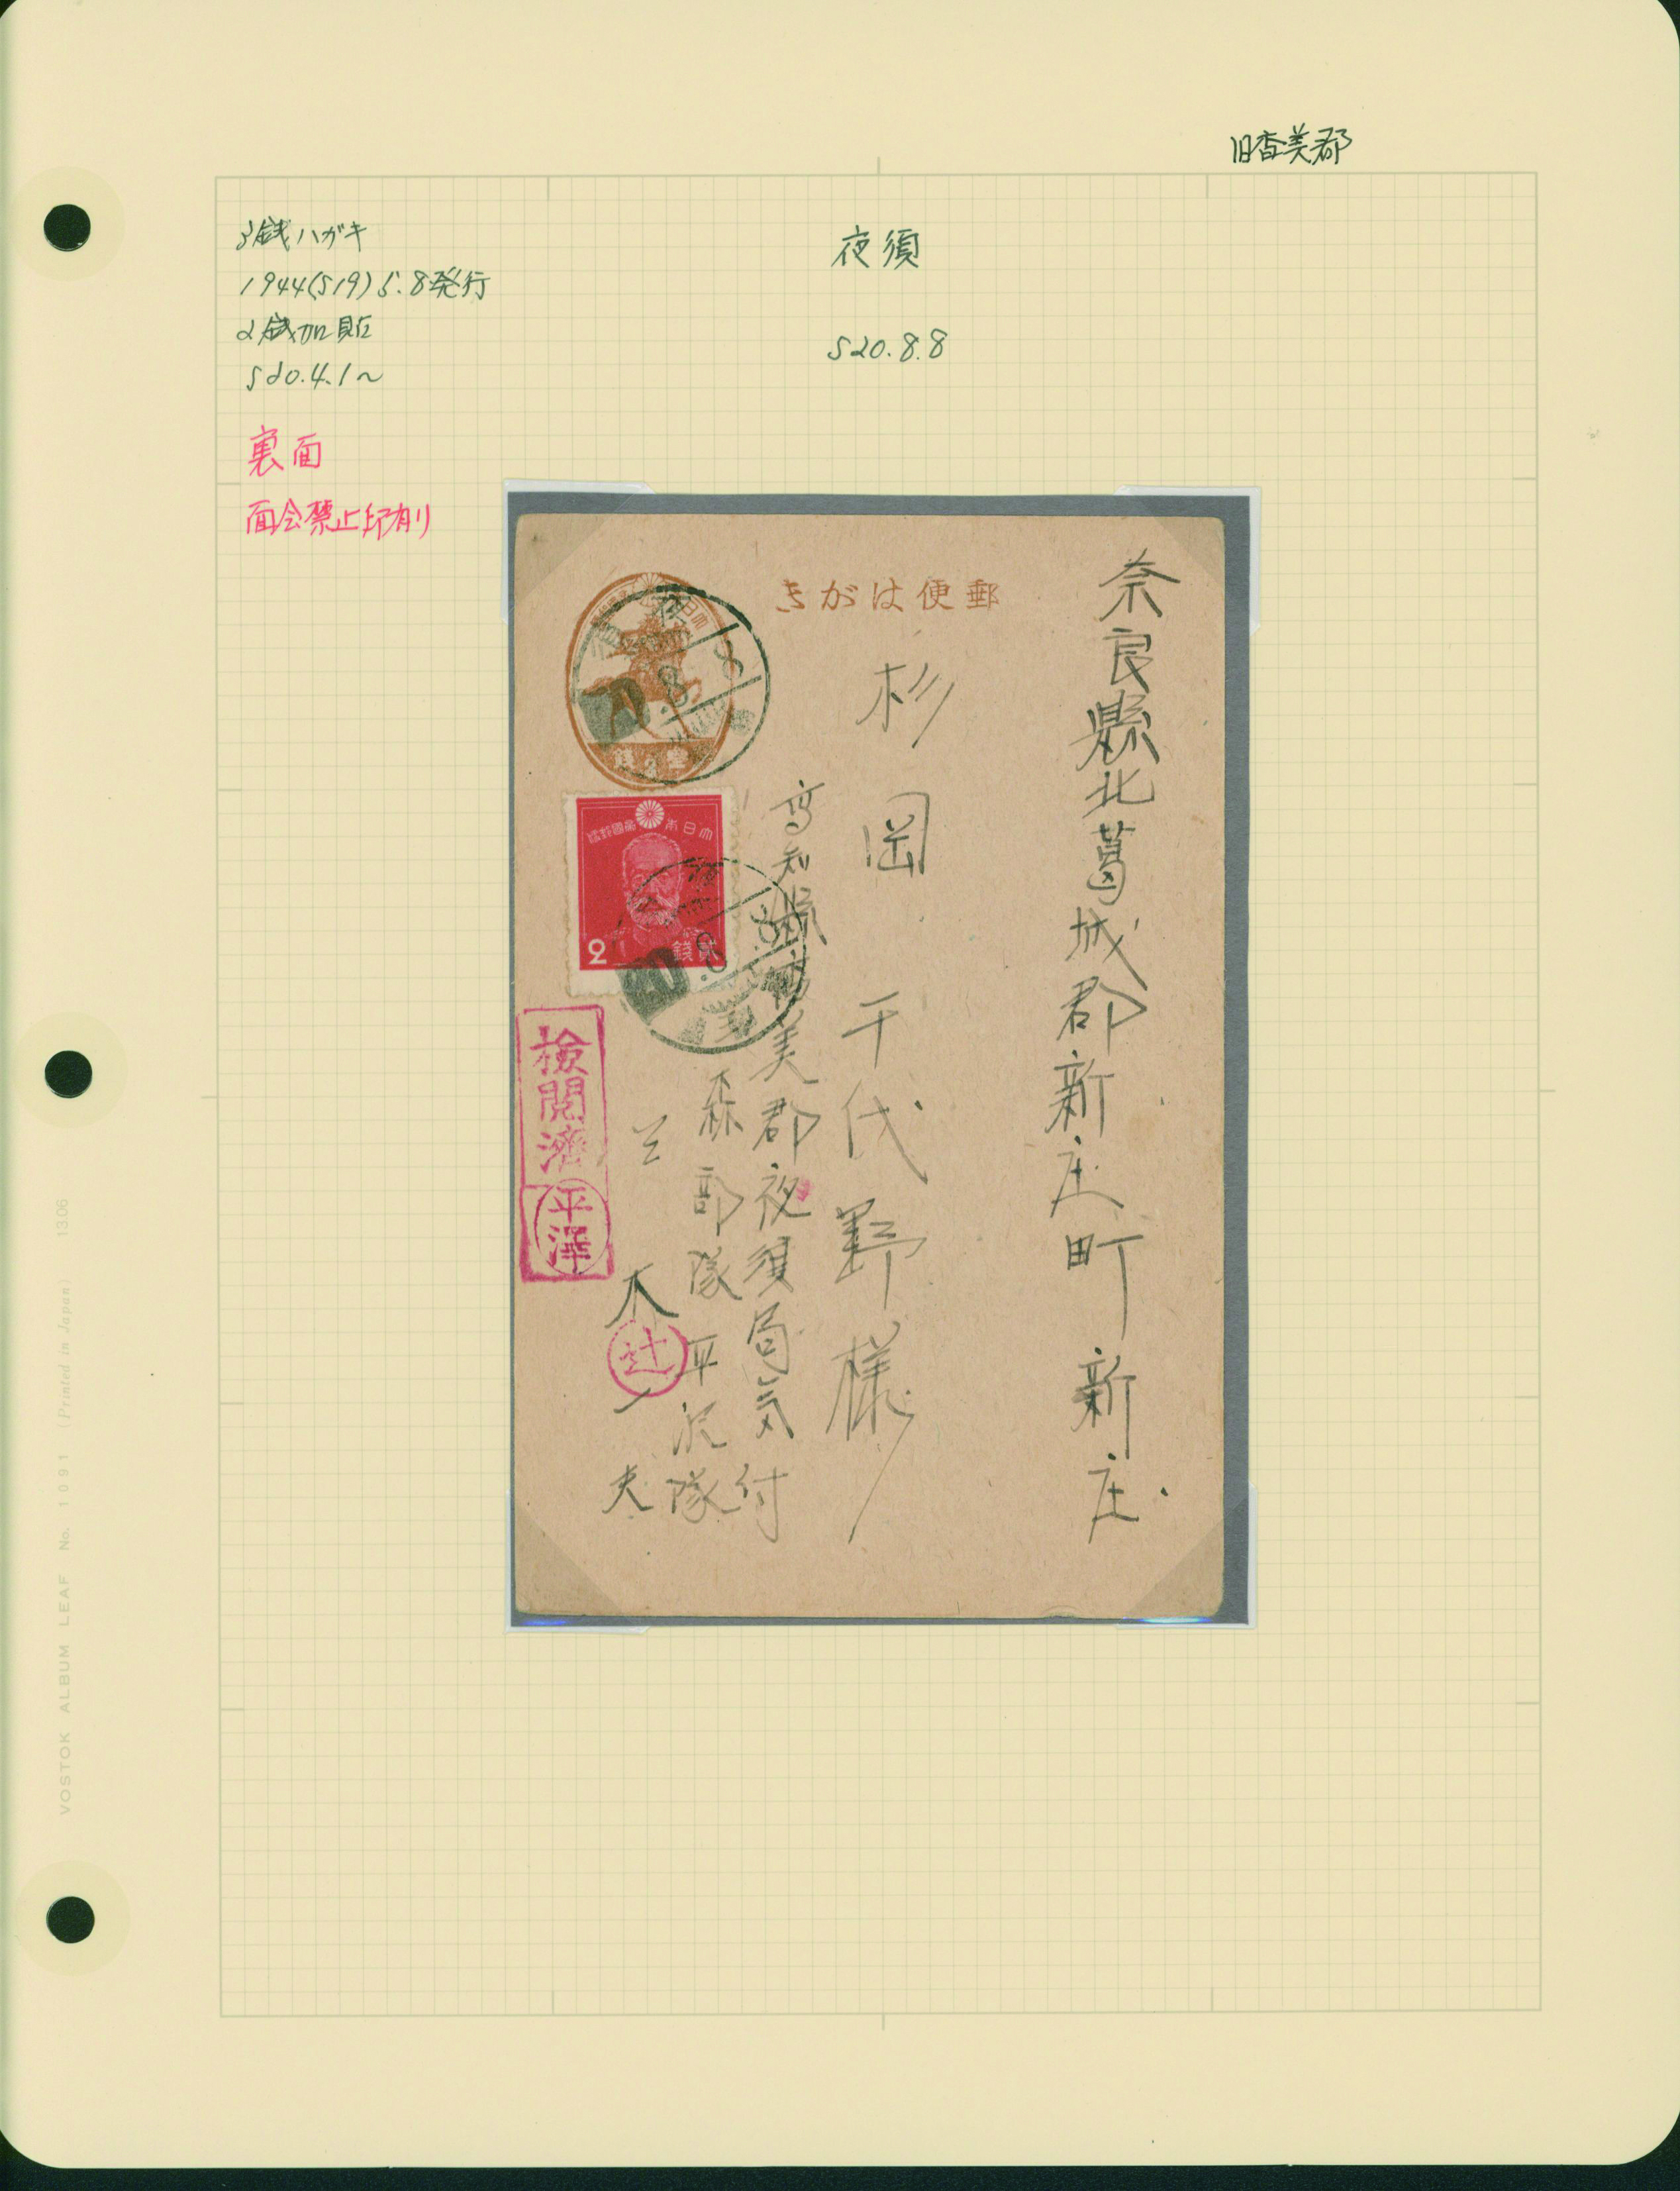 旧香美郡
3銭ハガキ
1944(S19)5.8発行
2銭加貼
S20.4.1~
裏面
面会禁止印有り
夜須
S20.8.8
きがは便郵
奈良縣北葛城郡新庄町新庄
杉岡千代野様
高知縣香美郡夜須局気付
森部隊平沢隊
夫
大日本帝國郵便
2
貳錢
20.8.8
20.8.8
檢閲濟
平澤
辻
VOSTOK ALBUM LEAF No. 1091 (Printed in Japan) 13.06